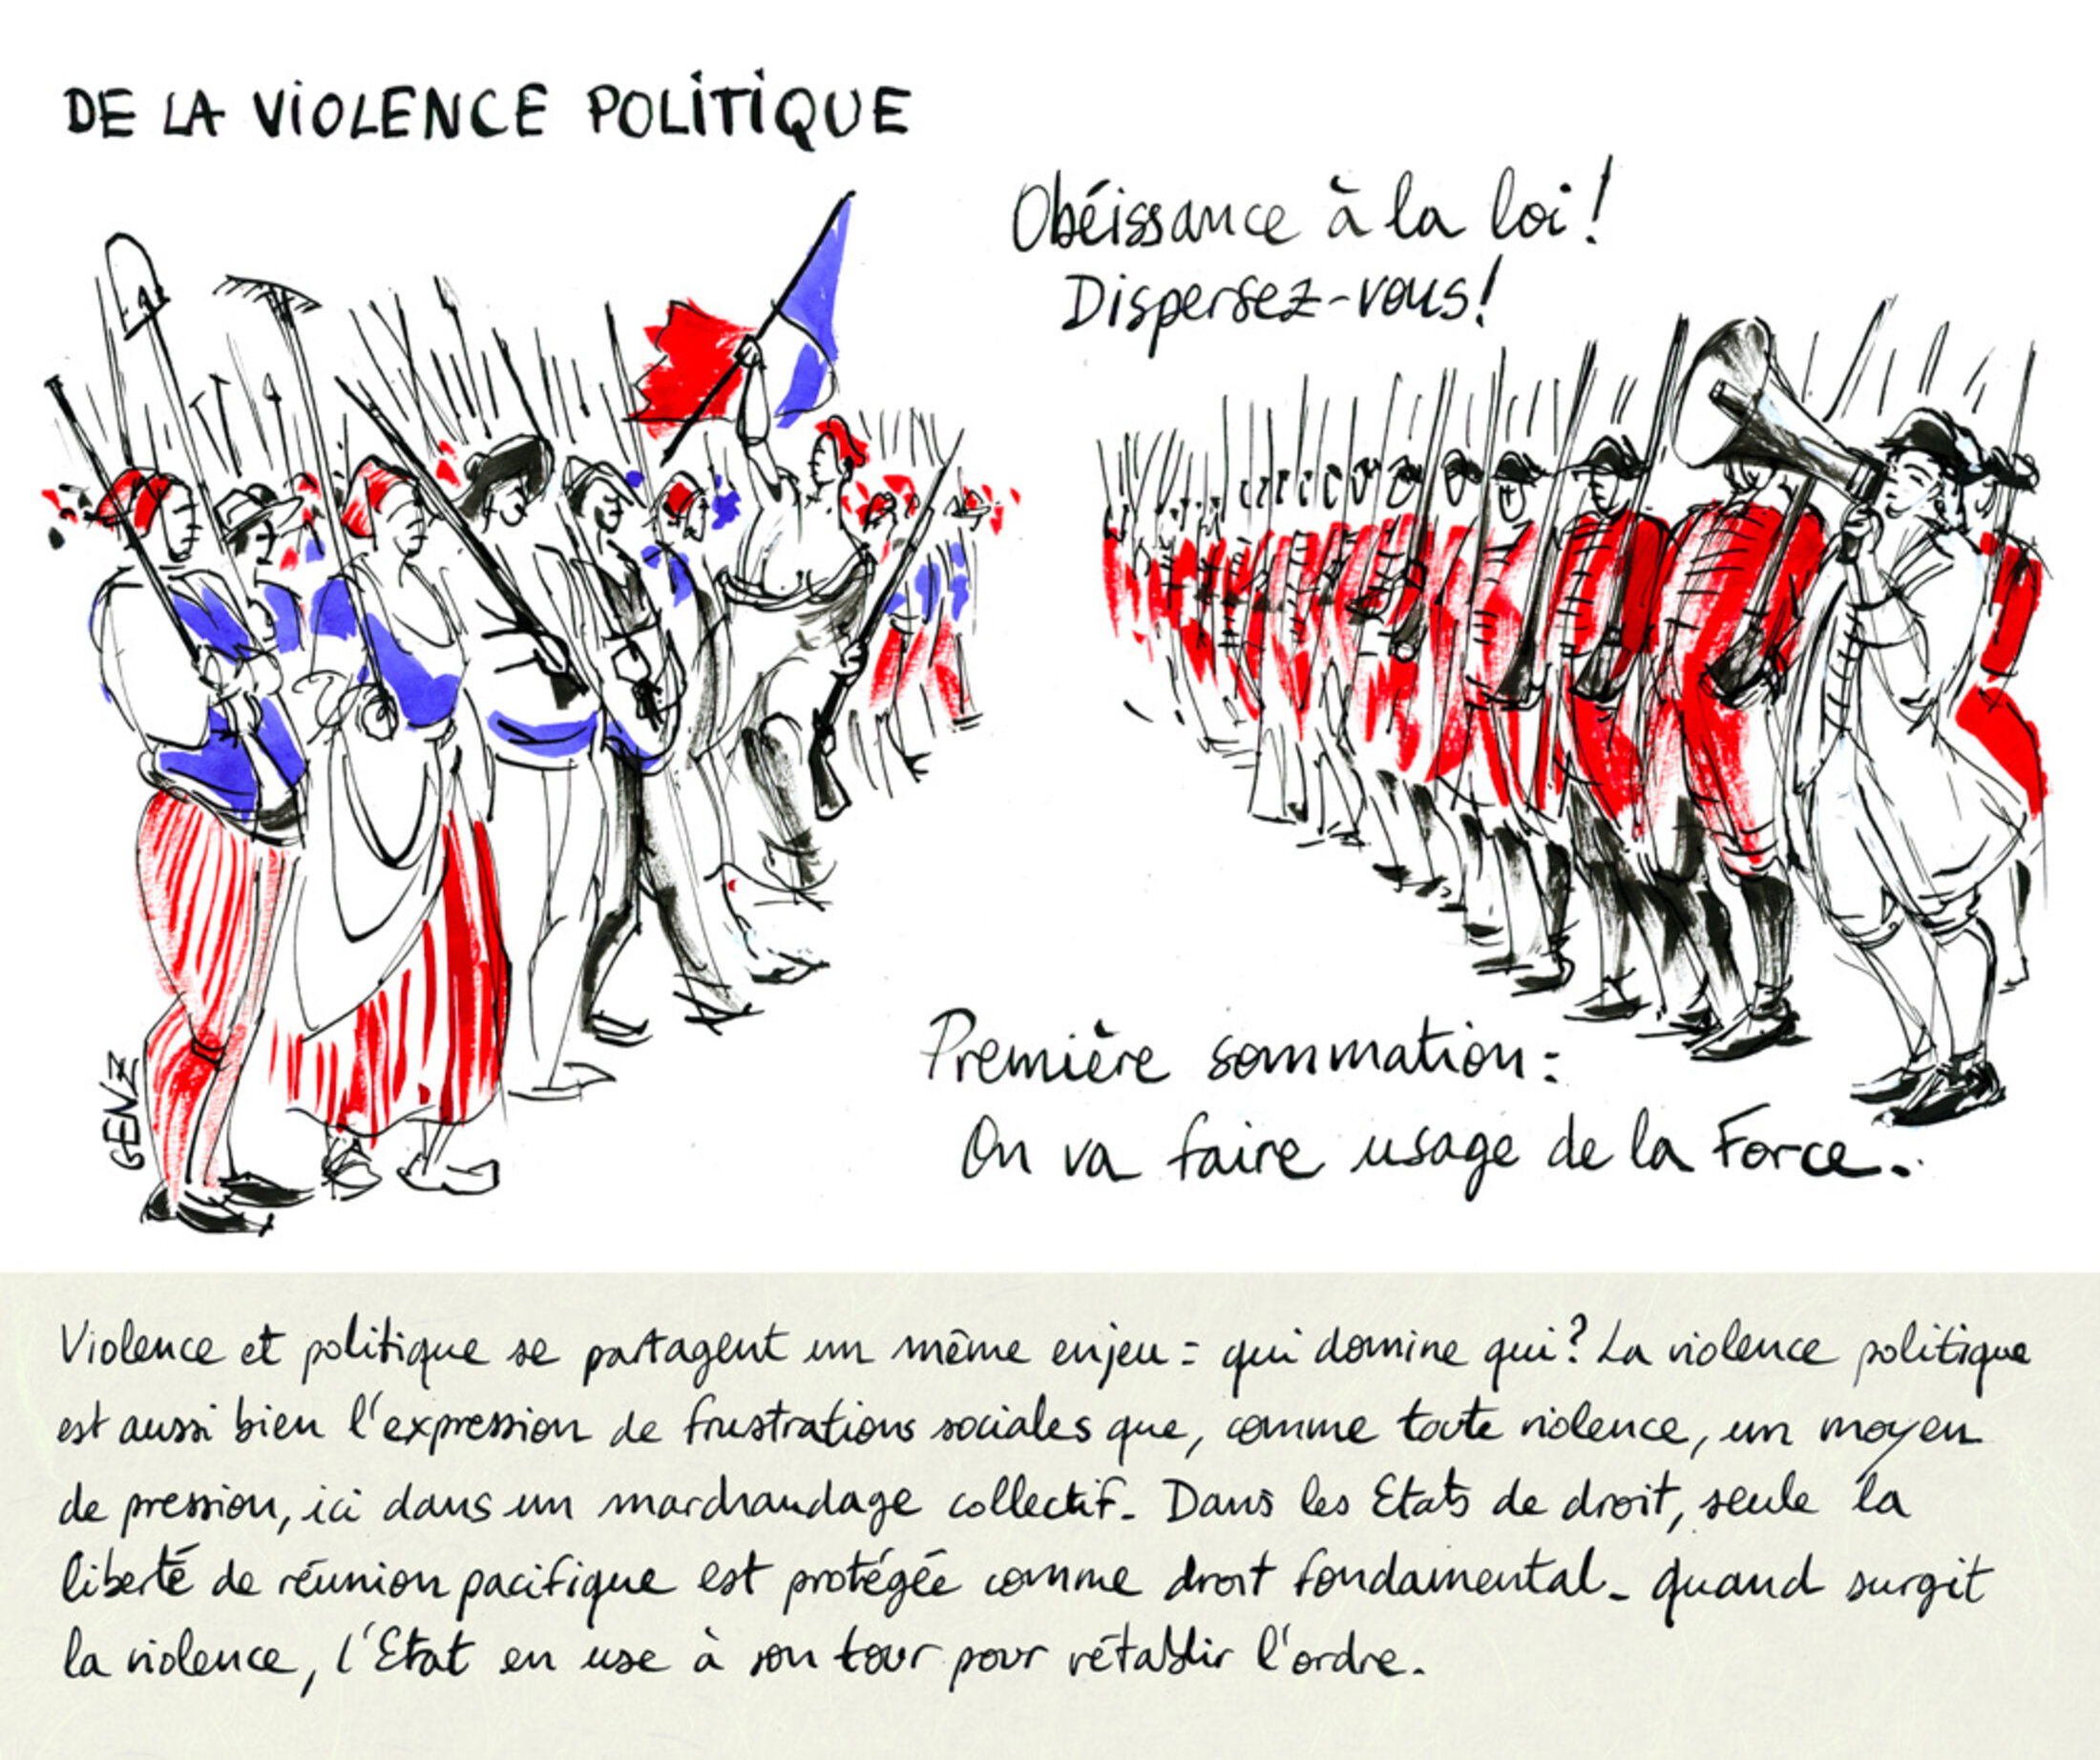 DE LA VIOLENCE POLITIQUE
Obéissance à la loi!
Dispersez-vous!
Première sommation:
On va faire usage de la Force.
GENZ
Violence et politique se partagent un même enjeu: qui domine qui? La violence politique
est aussi bien l'expression de frustrations sociales que, comme toute violence, un moyen
de pression, ici dans un marchandage collectif. Dans les Etats de droit, seule la
liberté de réunion pacifique est protégée comme droit fondamental. Quand surgit
la violence, l'Etat en use à son tour pour rétablir l'ordre.